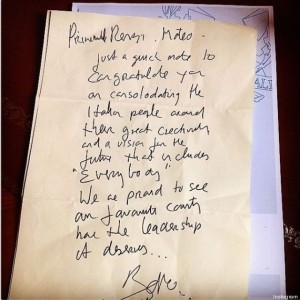 Renzi. Mateo
Just a quick note to
congratulate you
on consolodating the
Italian people around
their great creativity
and a vision for the
future that includes
"Everybody"
We are proud to see
our favourite country
have the leadership
it deserves...
Bono
Instagram